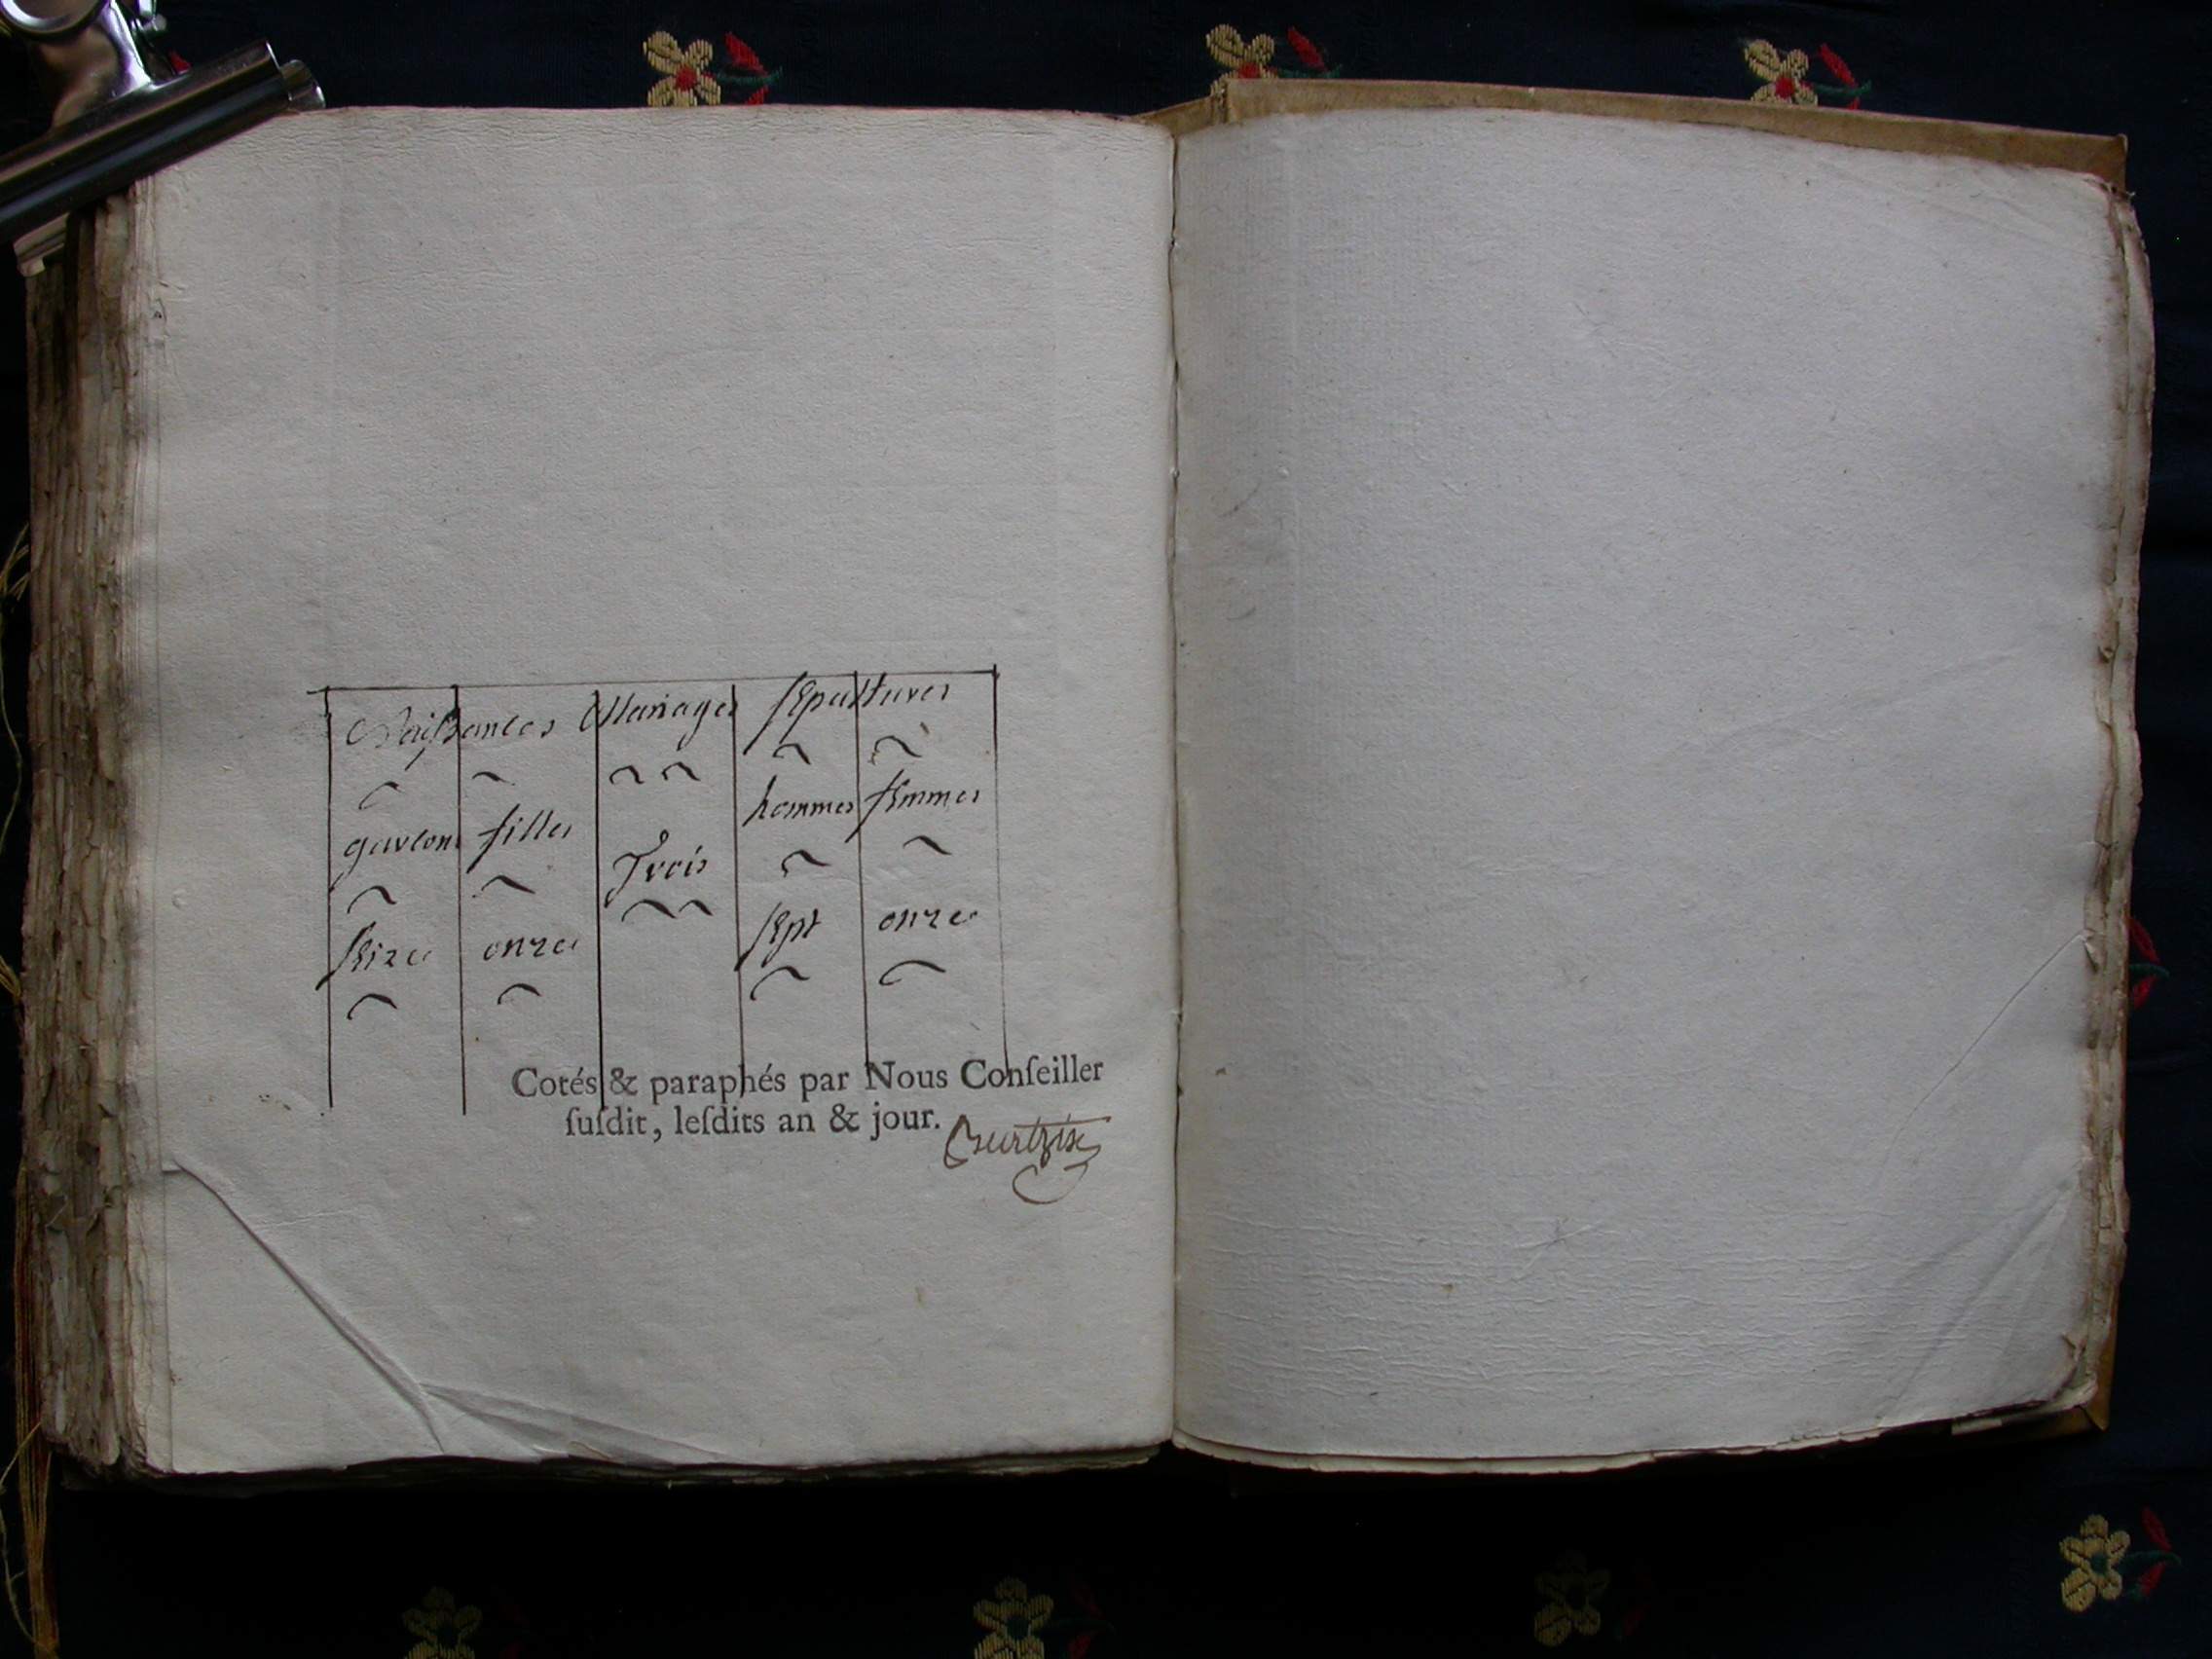 Naissances Mariages sépultures
hommes femmes
garcons filles
Trois
sept onze
seize onze
Cotés & paraphés par Nous Conſeiller
ſuſdit, leſdits an & jour.